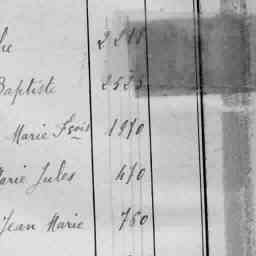 2218
Baptiste 2523
Marie Fçois 1970
Marie Jules 470
Jean Marie 760